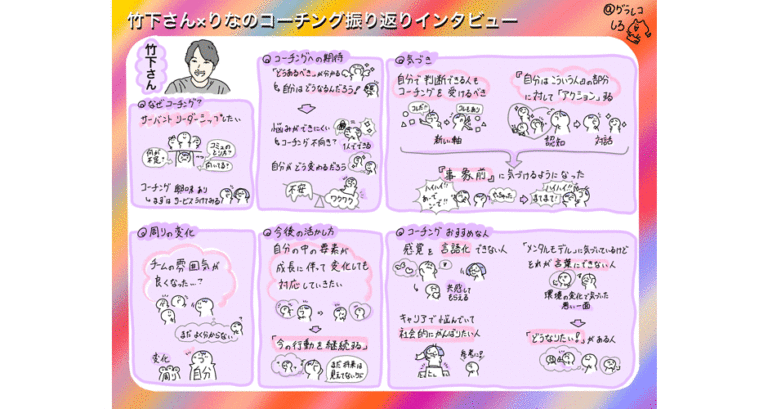 竹下さん×りなのコーチング振り返りインタビュー
@グラレコ
しろ
竹下さん
なぜコーチング?
サーバントリーダーシップしたい
コーチング 興味あり
↳まずはサービスうけてみる
コーチングへの期待
「どうあるべき」が分かる
↳自分はどうなるんだろう!
悩みができにくい
↳コーチング不向き?
1人でできる
自分がどう変わるだろう
不安
ワクワク
気づき
自分で判断できる人も
コーチングを受けるべき
コレだ!
コレもあり
新しい軸
『自分はこういう人』の部分
に対して「アクション」する
認知
対話
『事象前』に気づけるようになった
ハイハイ!!
やっちゃった
ハイハイ!!
まてまて!
周りの変化
チームの雰囲気が
良くなった…?
まだよく分からない
変化
周り
自分
今後の活かし方
自分の中の要素が
成長に伴って変化しても
対応していきたい
「今の行動を継続する」
まだ将来は
見えてないけど
コーチング おすすめな人
感覚を言語化できない人
共感して
もらえる
キャリアで悩んでいて
社会的にがんばりたい人
「メンタルモデル」に気づいているけど
それが言葉にできない人
環境の変化で気づいた
悪い一面
「どうなりたい!」がある人